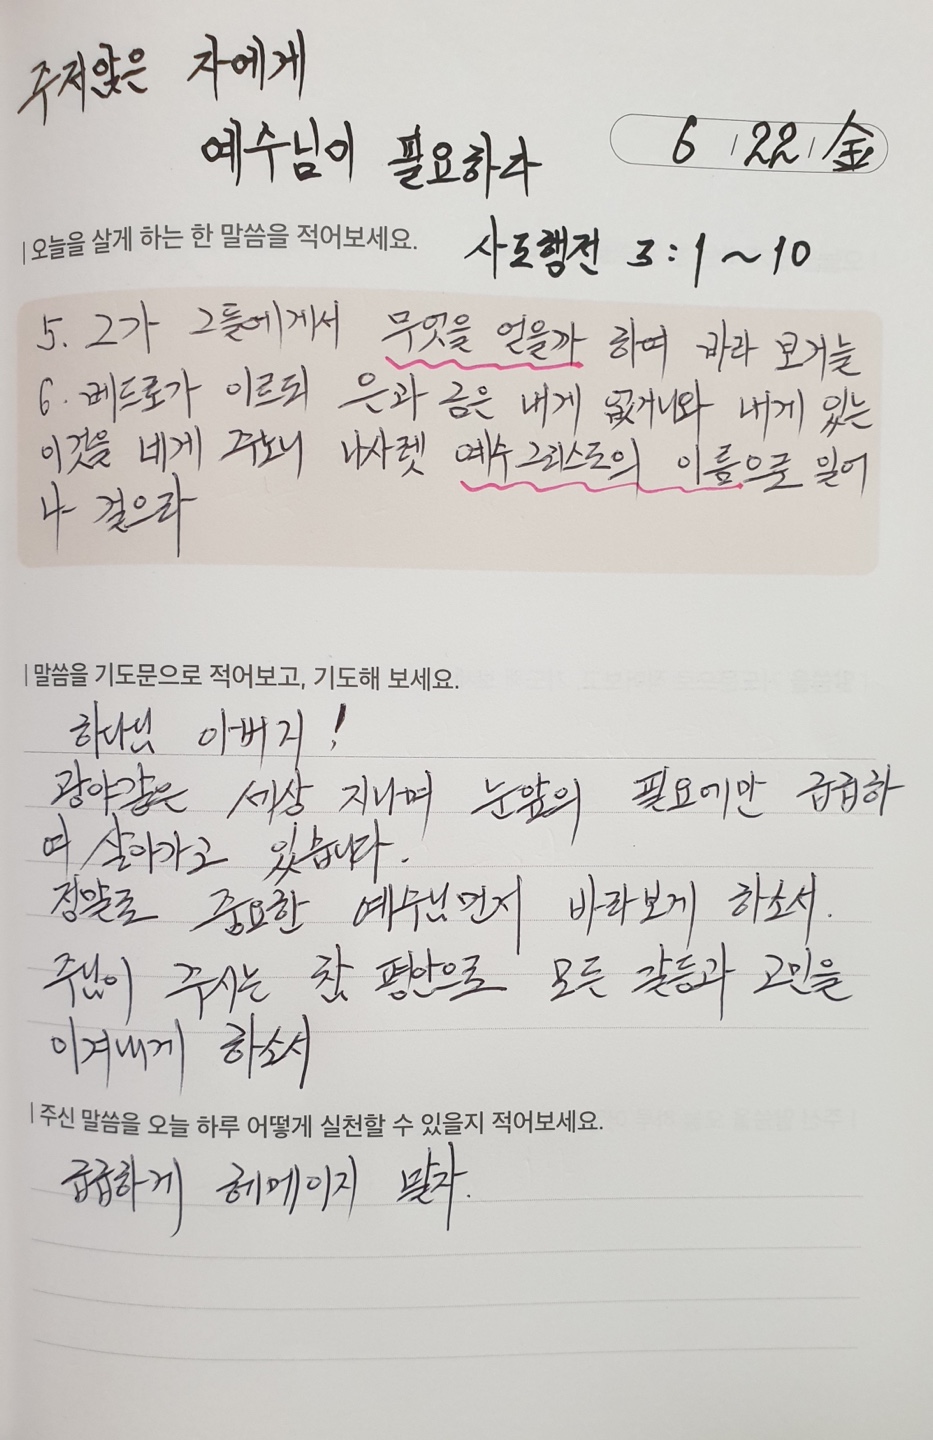 주저앉은 자에게
예수님이 필요하다
6 / 22 / 金
오늘을 살게 하는 한 말씀을 적어보세요.
사도행전 3:1~10
5. 그가 그들에게서 무엇을 얻을까 하여 바라 보거늘
6. 베드로가 이르되 은과 금은 내게 없거니와 내게 있는
이것을 네게 주노니 나사렛 예수 그리스도의 이름으로 일어
나 걸으라
말씀을 기도문으로 적어보고, 기도해 보세요.
하나님 아버지!
광야같은 세상 지나며 눈앞의 필요에만 급급하
여 살아가고 있습니다.
정말로 중요한 예수님먼저 바라보게 하소서.
주님이 주시는 참 평안으로 모든 갈등과 고민을
이겨내게 하소서
주신 말씀을 오늘 하루 어떻게 실천할 수 있을지 적어보세요.
급급하게 헤메이지 말자.